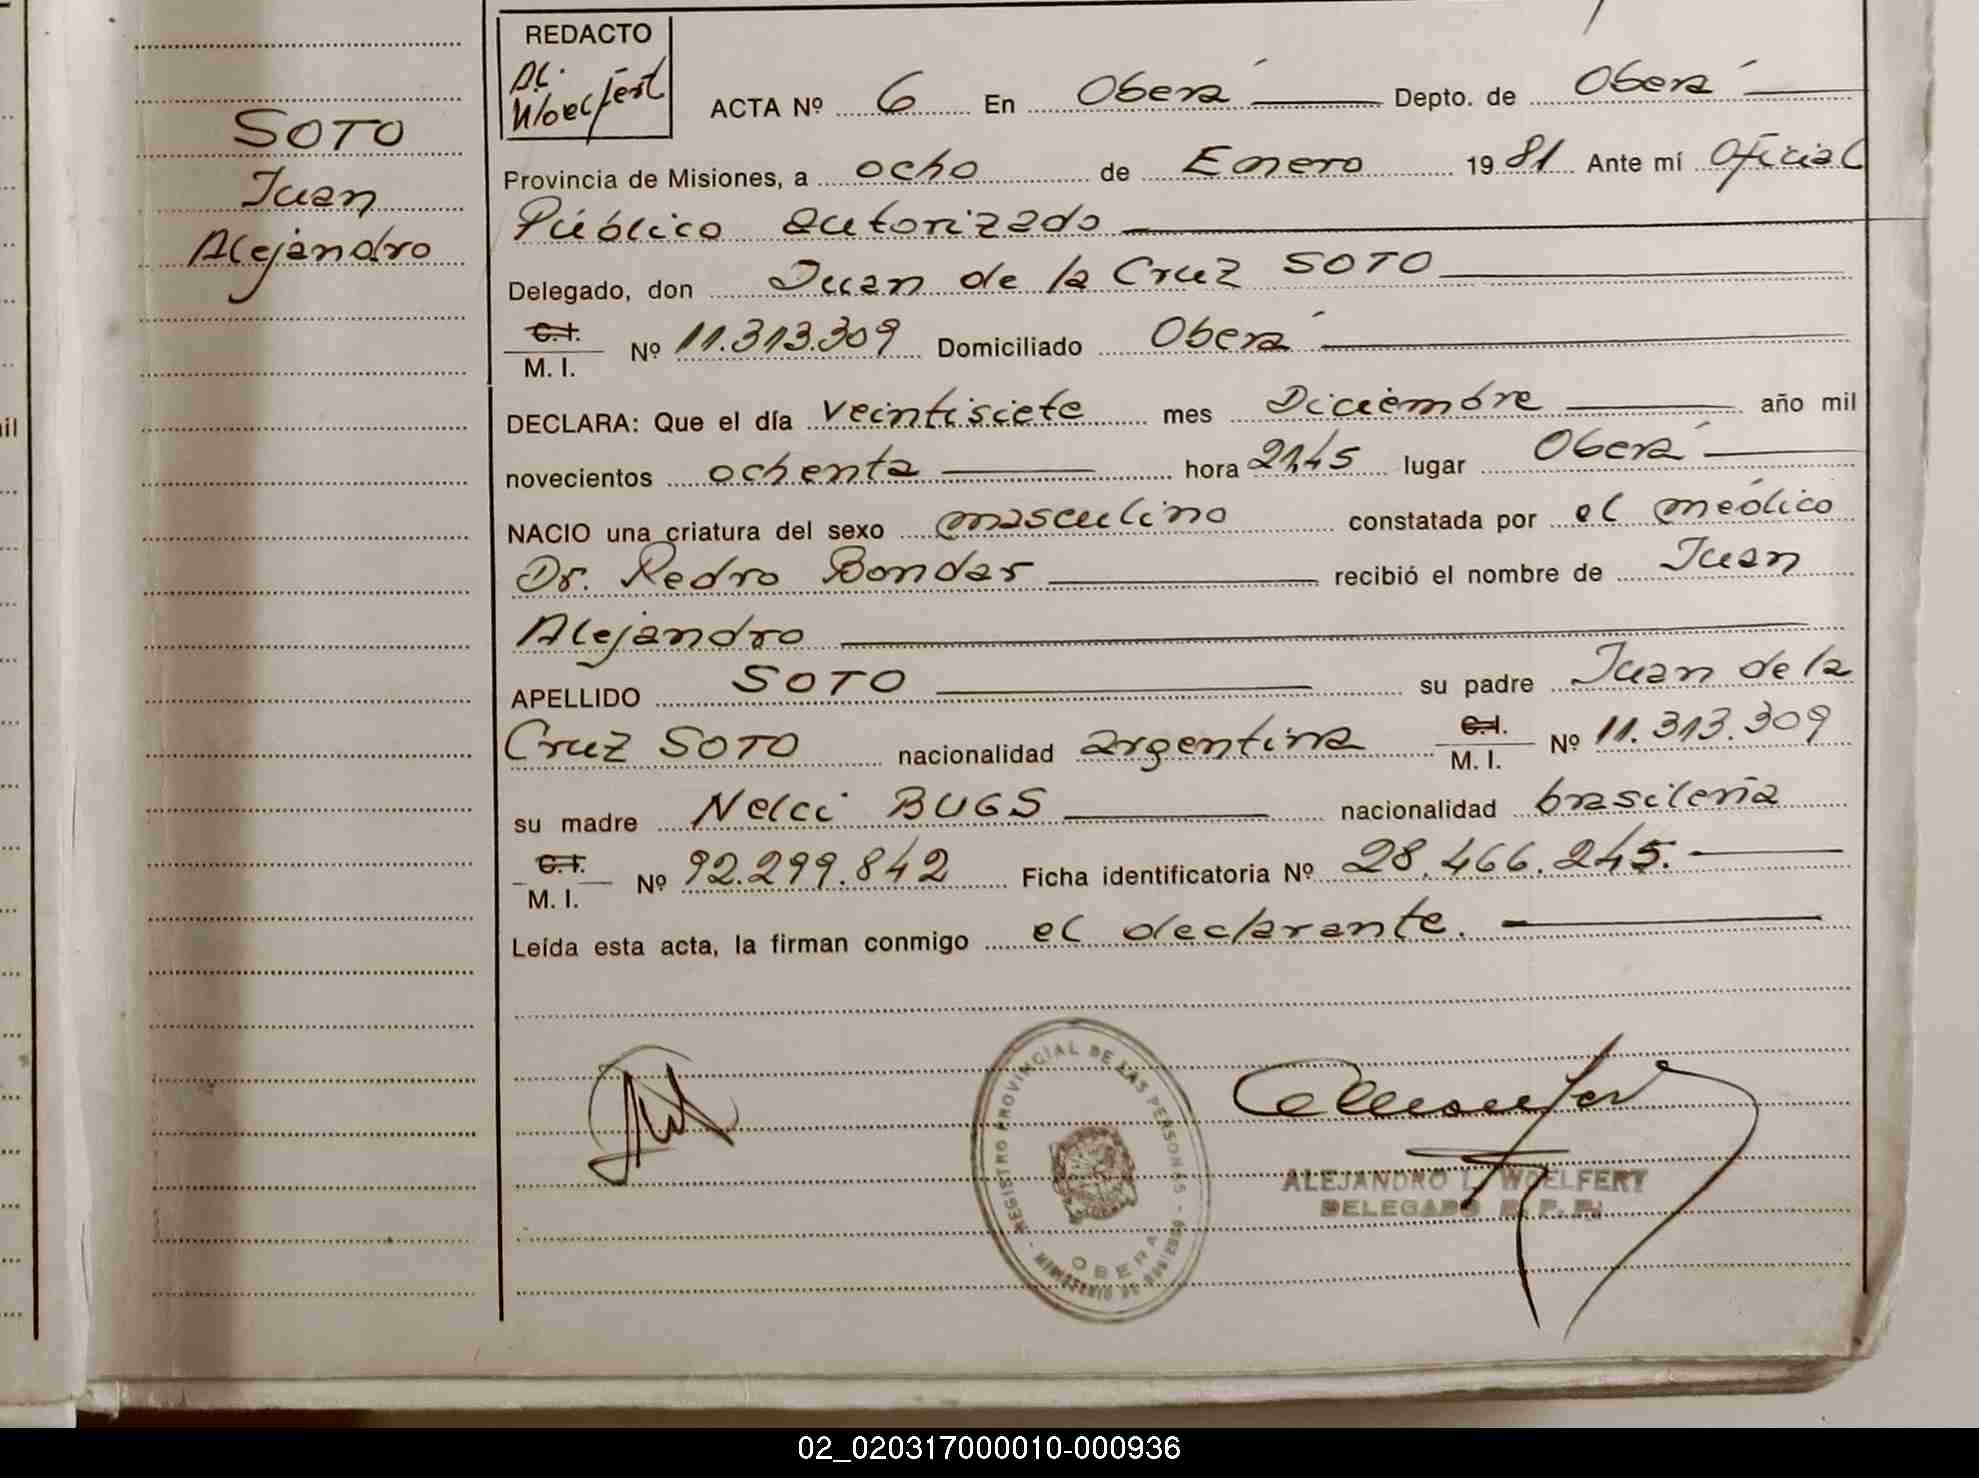 SOTO
Juan
Alejandro
REDACTO
A.L. Woelfert
ACTA Nº 6 En Oberá Depto. de Oberá
Provincia de Misiones, a ocho de Enero 1981 Ante mí Oficial
Público autorizado
Delegado, don Juan de la Cruz SOTO
C.I.
M. I. Nº 11.313.309 Domiciliado Oberá
DECLARA: Que el día veintisiete mes Diciembre año mil
novecientos ochenta hora 21,45 lugar Oberá
NACIO una criatura del sexo masculino constatada por el médico
Dr. Pedro Bondar recibió el nombre de Juan
Alejandro
APELLIDO SOTO su padre Juan de la
Cruz SOTO nacionalidad argentina C.I. M. I. Nº 11.313.309
su madre Nelci BUGS nacionalidad brasileña
C.I.
M. I. Nº 92.299.842 Ficha identificatoria Nº 28.466.245.
Leída esta acta, la firman conmigo el declarante.
REGISTRO PROVINCIAL DE LAS PERSONAS
OBERA
MINISTERIO DE GOBIERNO
ALEJANDRO L. WOELFERT
DELEGADO R. P. P.
il
02_020317000010-000936